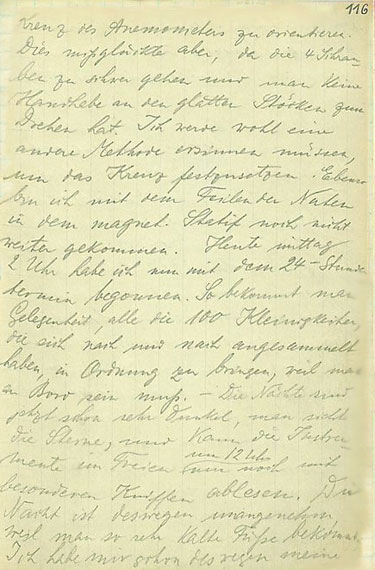 116
Kreuz des Anemometers zu orientieren.
Dies mißglückte aber, da die 4 Schrau-
ben zu schwer gehen und man keine
Handhebe an den glatten Stöcken zum
Drehen hat. Ich werde wohl eine
andere Methode ersinnen müssen,
um das Kreuz festzusetzen. Ebenso
bin ich mit dem Feilen der Nuten
in dem magnet. Stativ noch nicht
weiter gekommen. Heute mittag
2 Uhr habe ich nun mit dem 24-Stunden
termin begonnen. So bekommt man
Gelegenheit, alle die 100 Kleinigkeiten,
die sich nach und nach angesammelt
haben, in Ordnung zu bringen, weil man
an Bord sein muß. - Die Nächte sind
jetzt schon sehr dunkel, man sieht
die Sterne, und kann die Instru-
mente im Freien um 12 Uhr nur noch mit
besonderen Kniffen ablesen. Die
Nacht ist deswegen unangenehm
weil man so sehr kalte Füße bekommt.
Ich habe mir schon deswegen meine